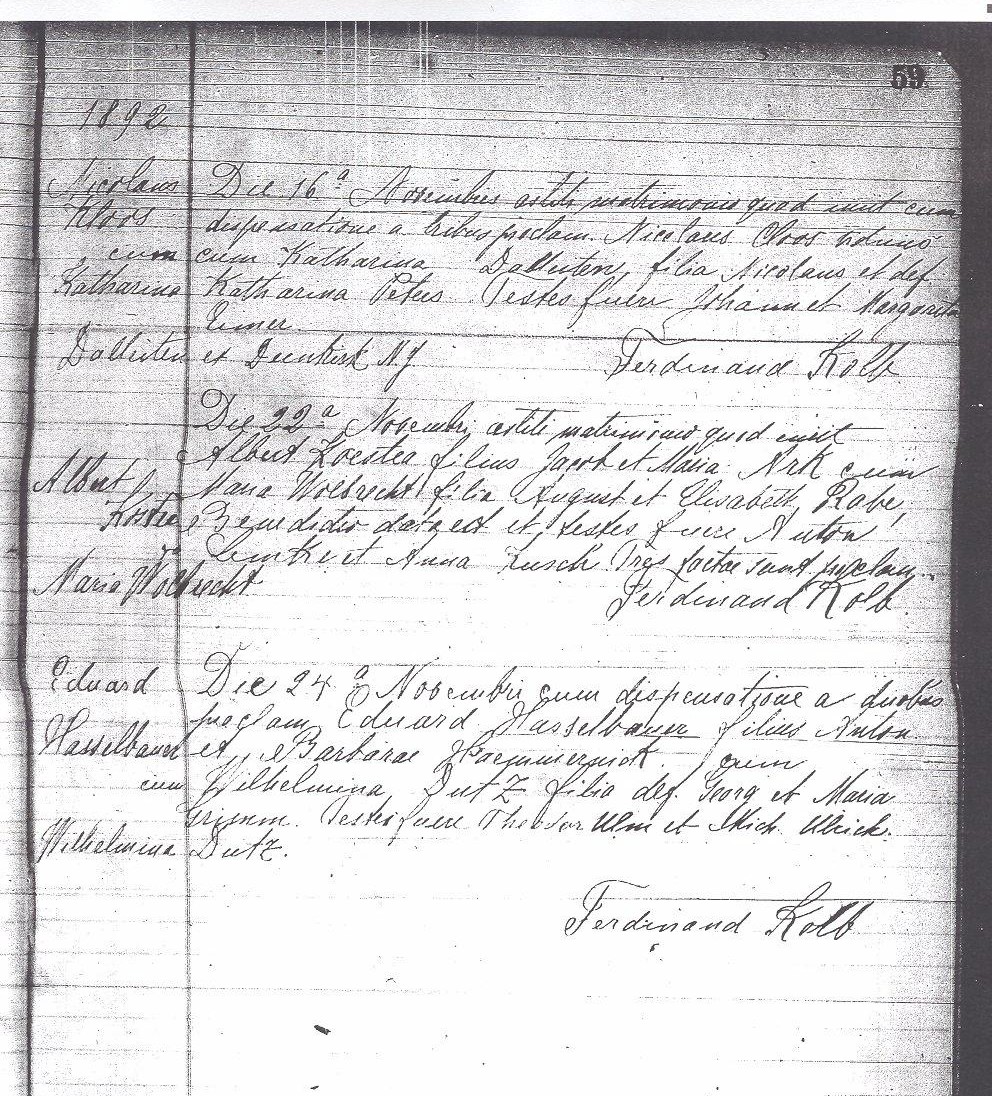 59
1892
Nicolaus
Kloos
cum
Katharina
Die 16ª Novembris astiti matrimonio quod iniit cum
dispensatione a tribus proclam. Nicolaus Cloos viduus
cum Katharina filia Nicolaus et def
Katharina Peters. Testes fuere Johann et Margareta
et Dunkirk N.Y
Ferdinand Kolb
Albert
Maria Wolbrecht
Die 22ª Novembri astiti matrimonio quod iniit
Albert filius Jacob et Maria cum
Maria Wolbrecht filia August et Elisabeth Rabe,
Benedictio data est et testes fuere Anton
Lemke et Anna Tres factae sunt proclam.
Ferdinand Kolb
Eduard
Hasselbauer
cum
Wilhelmina
Dutz.
Die 24ª Novembri cum dispensatione a duobus
proclam. Eduard Hasselbauer filius Anton
et Barbarae cum
Wilhelmina Dutz filia def. Georg et Maria
Grimm. Testes fuere Theodor Ulm et Mich. Ulrich.
Ferdinand Kolb